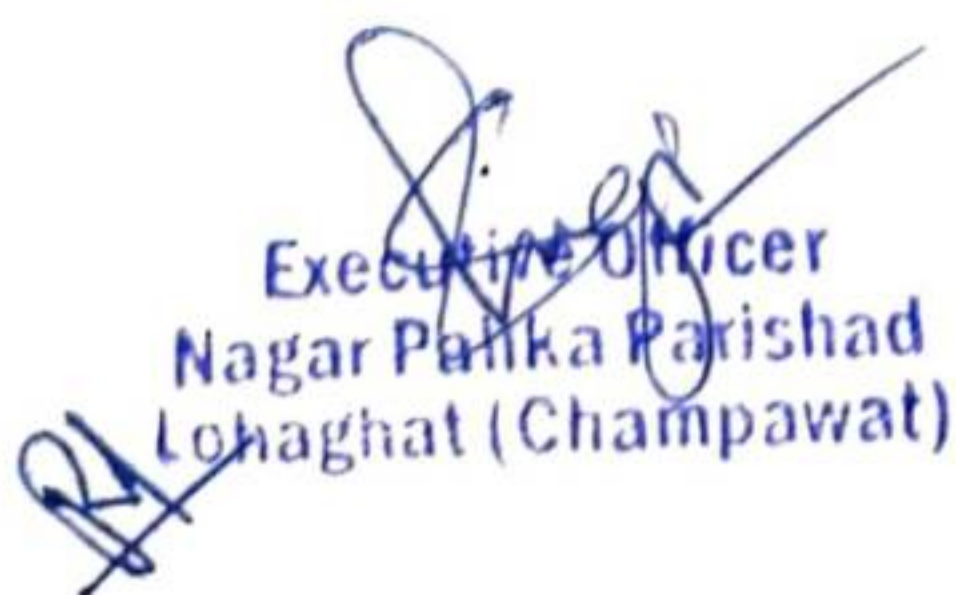 Executive Officer
Nagar Palika Parishad
Lohaghat (Champawat)